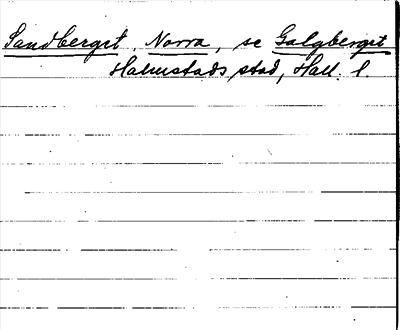 Sandberget, Norra, se Galgberget
Halmstads stad, Hall. l.